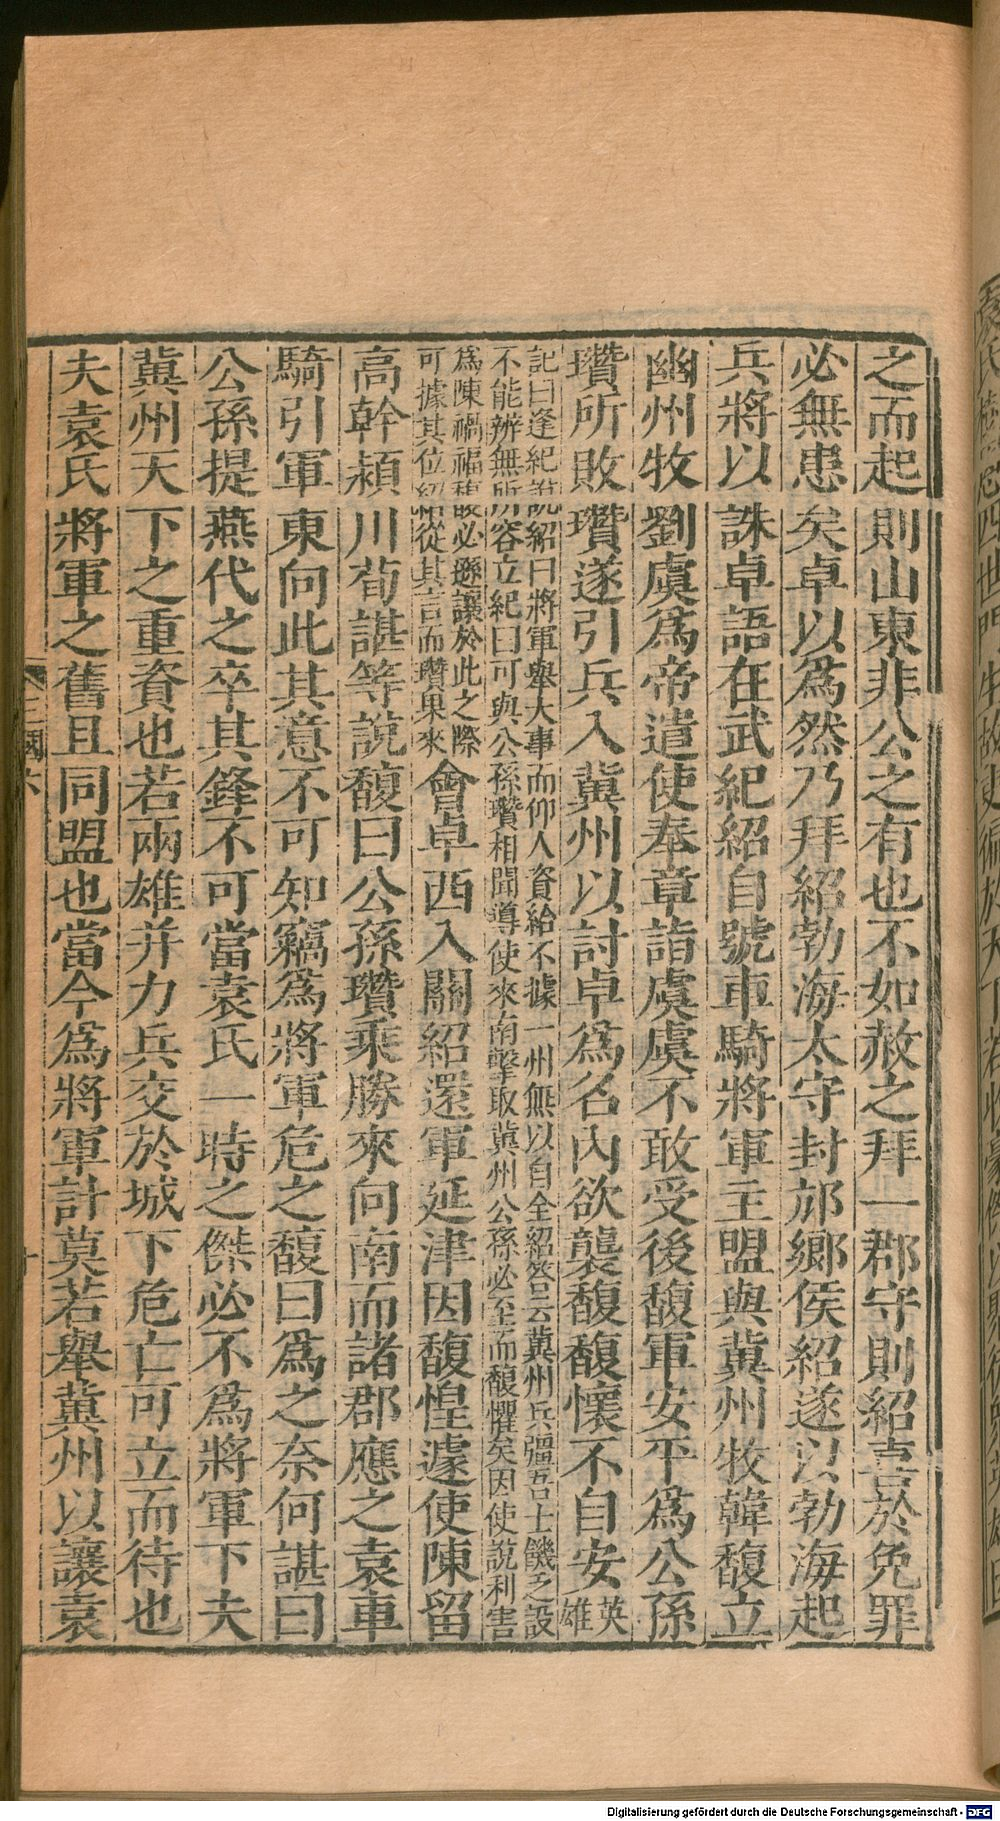 之而起則山東非公之有也不如赦之拜一郡守則紹喜於免罪
必無患矣卓以爲然乃拜紹勃海太守封邟鄉侯紹遂以勃海起
兵將以誅卓語在武紀紹自號車騎將軍主盟與冀州牧韓馥立
幽州牧劉虞爲帝遣使奉章詣虞虞不敢受後馥軍安平爲公孫
瓚所敗瓚遂引兵入冀州以討卓爲名內欲襲馥馥懷不自安英雄
記曰逢紀說紹曰將軍舉大事而仰人資給不據一州無以自全紹答云冀州兵彊吾士饑乏設
不能辨無所容立紀曰可與公孫瓚相聞導使來南擊取冀州公孫必至而馥懼矣因使說利害
爲陳禍福馥必遜讓於此之際
可據其位紹從其言而瓚果來
會卓西入關紹還軍延津因馥惶遽使陳留
高幹潁川荀諶等說馥曰公孫瓚乘勝來向南而諸郡應之袁車
騎引軍東向此其意不可知竊爲將軍危之馥曰爲之奈何諶曰
公孫提燕代之卒其鋒不可當袁氏一時之傑必不爲將軍下夫
冀州天下之重資也若兩雄并力兵交於城下危亡可立而待也
夫袁氏將軍之舊且同盟也當今爲將軍計莫若舉冀州以讓袁
三國六
Digitalisierung gefördert durch die Deutsche Forschungsgemeinschaft - DFG